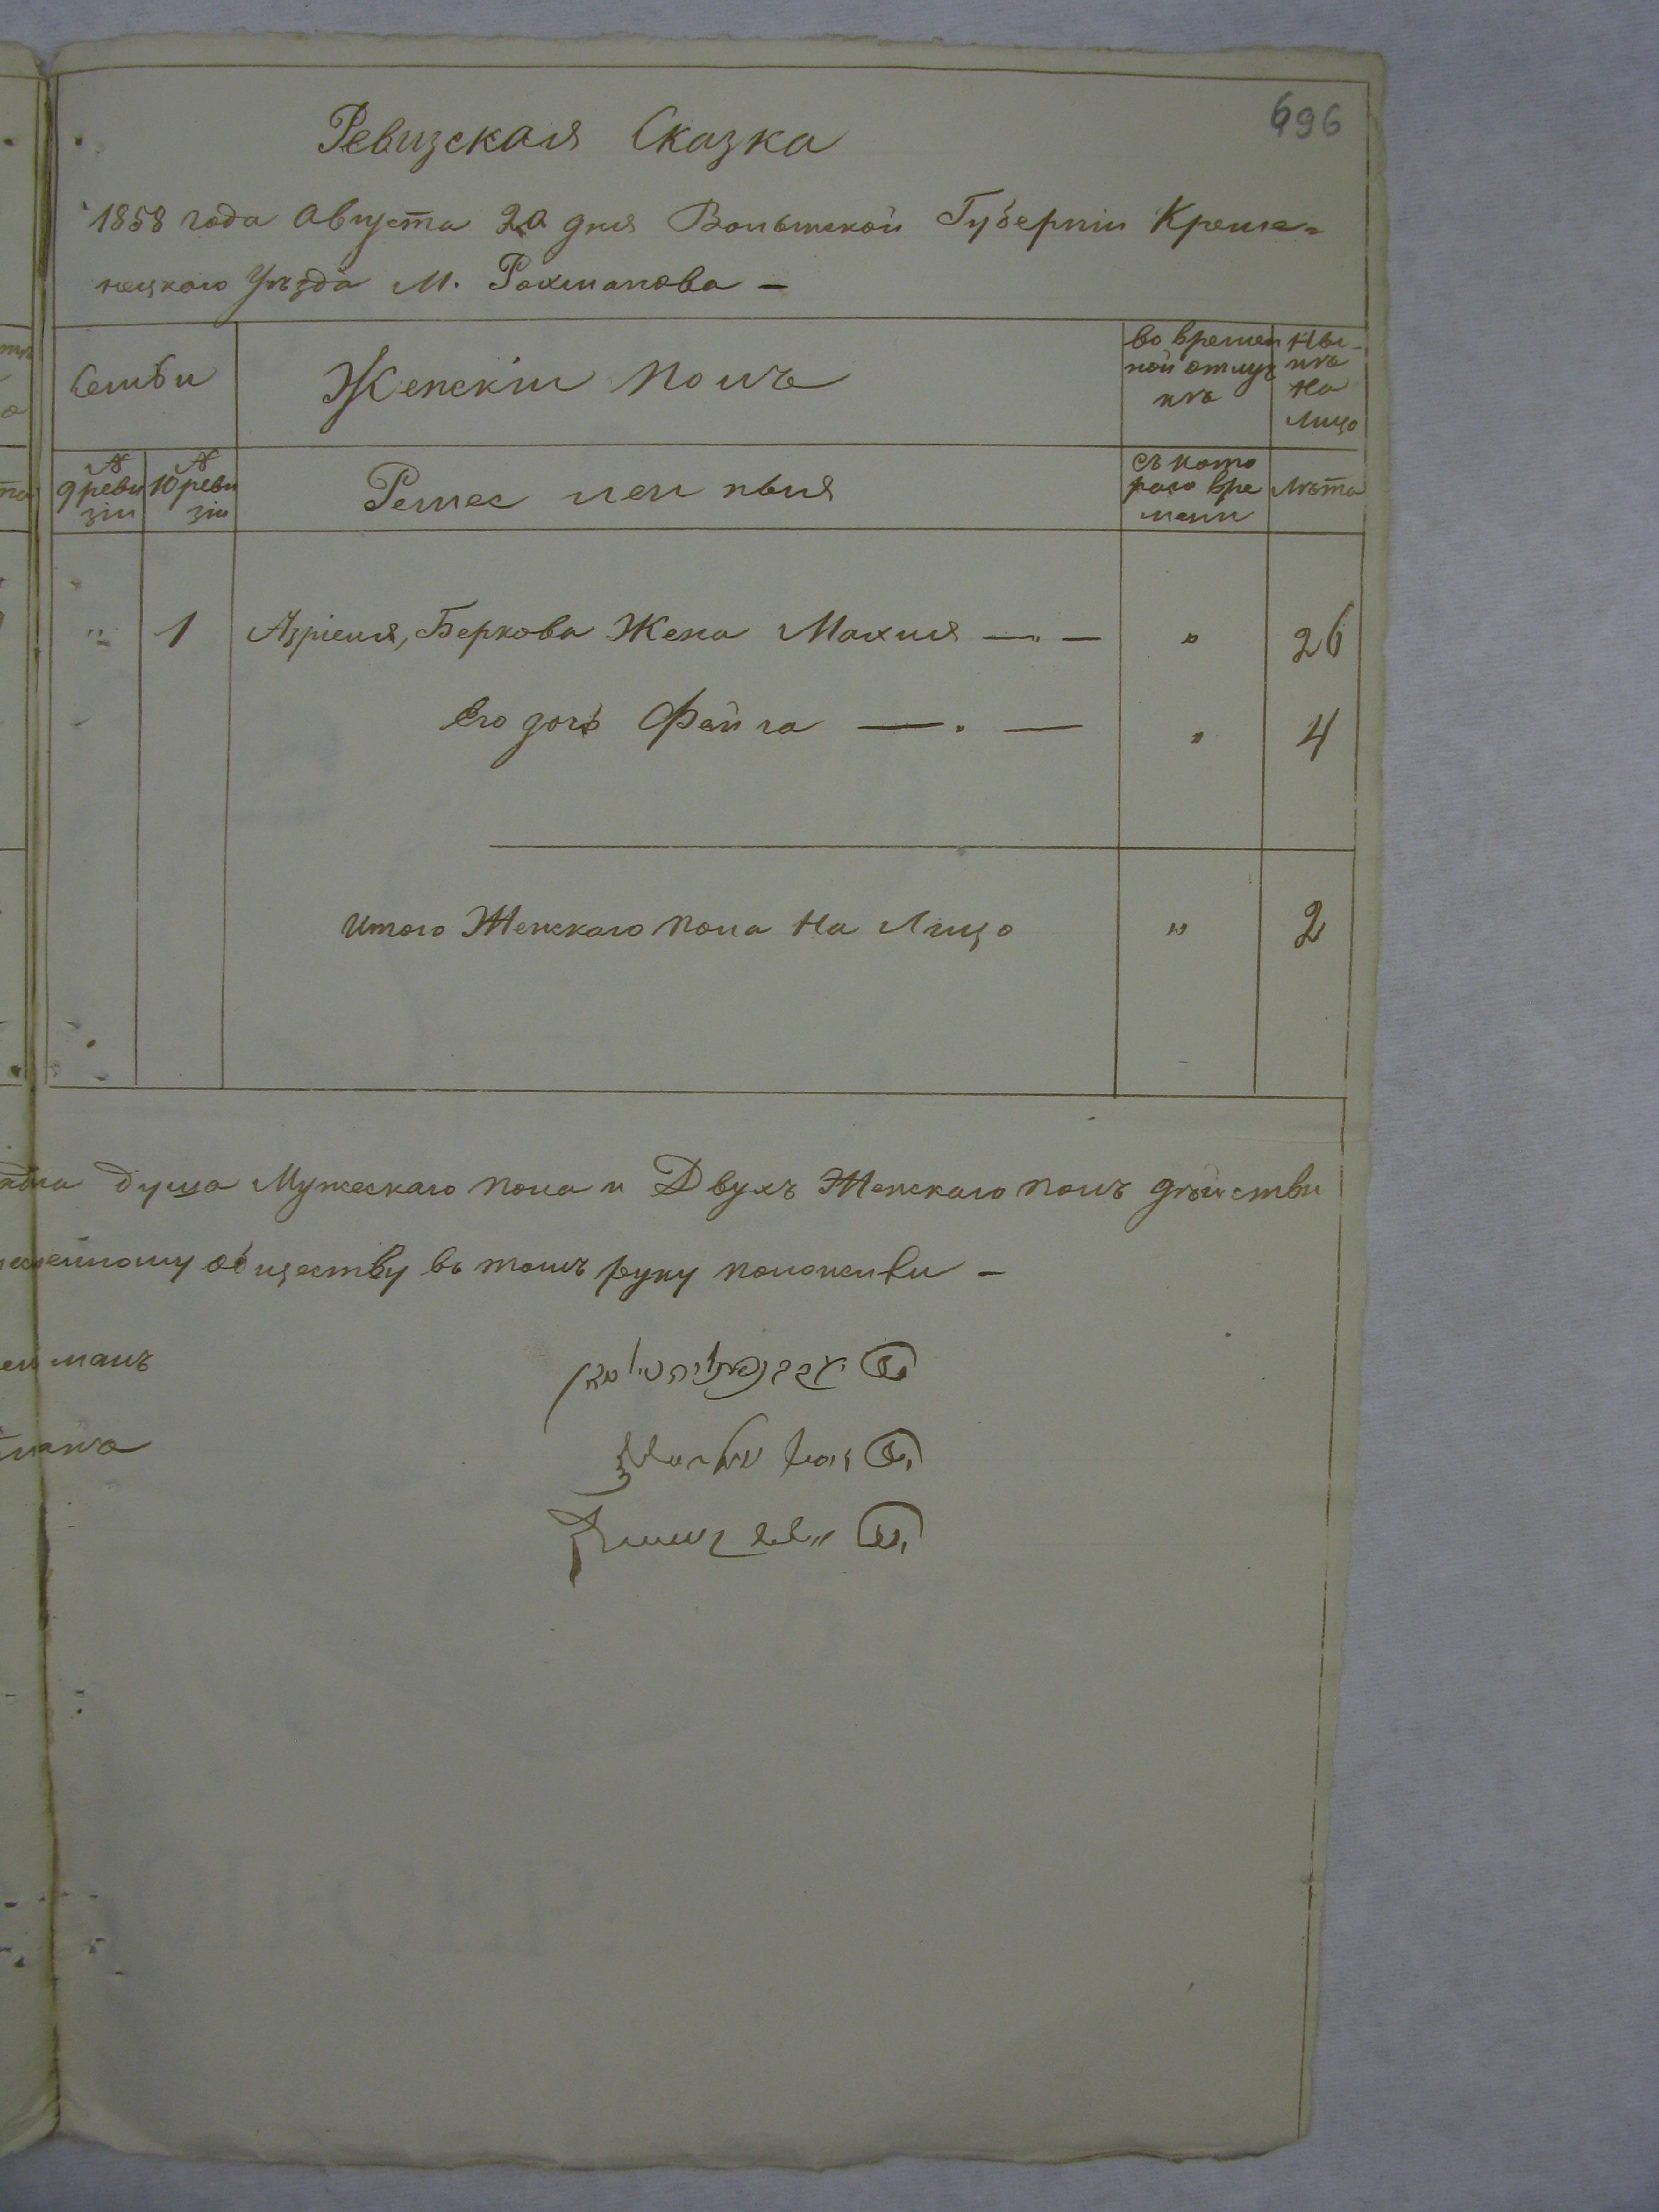 696
Ревизская Сказка
1858 года Августа 20 дня Волынской Губернiи Креме-
нецкаго Уѣзда М. Рахманова —
Семьи
Женскiи полъ
во времен
ной отлуч
кѣ
Ны-
нѣ
На
Лицо
№
9 реви
зiи
№
10 реви
зiи
Ремесленныя
съ кото
раго вре
мени
Лѣта
" 1 Азрiеля, Беркова Жена Махля — " — " 26
Его дочь Фейга — . — " 4
Итого Женскаго пола На Лицо " 2
душа Мужескаго пола и Двухъ Женскаго полъ дѣйстви
обществу въ томъ руку положили —
манъ